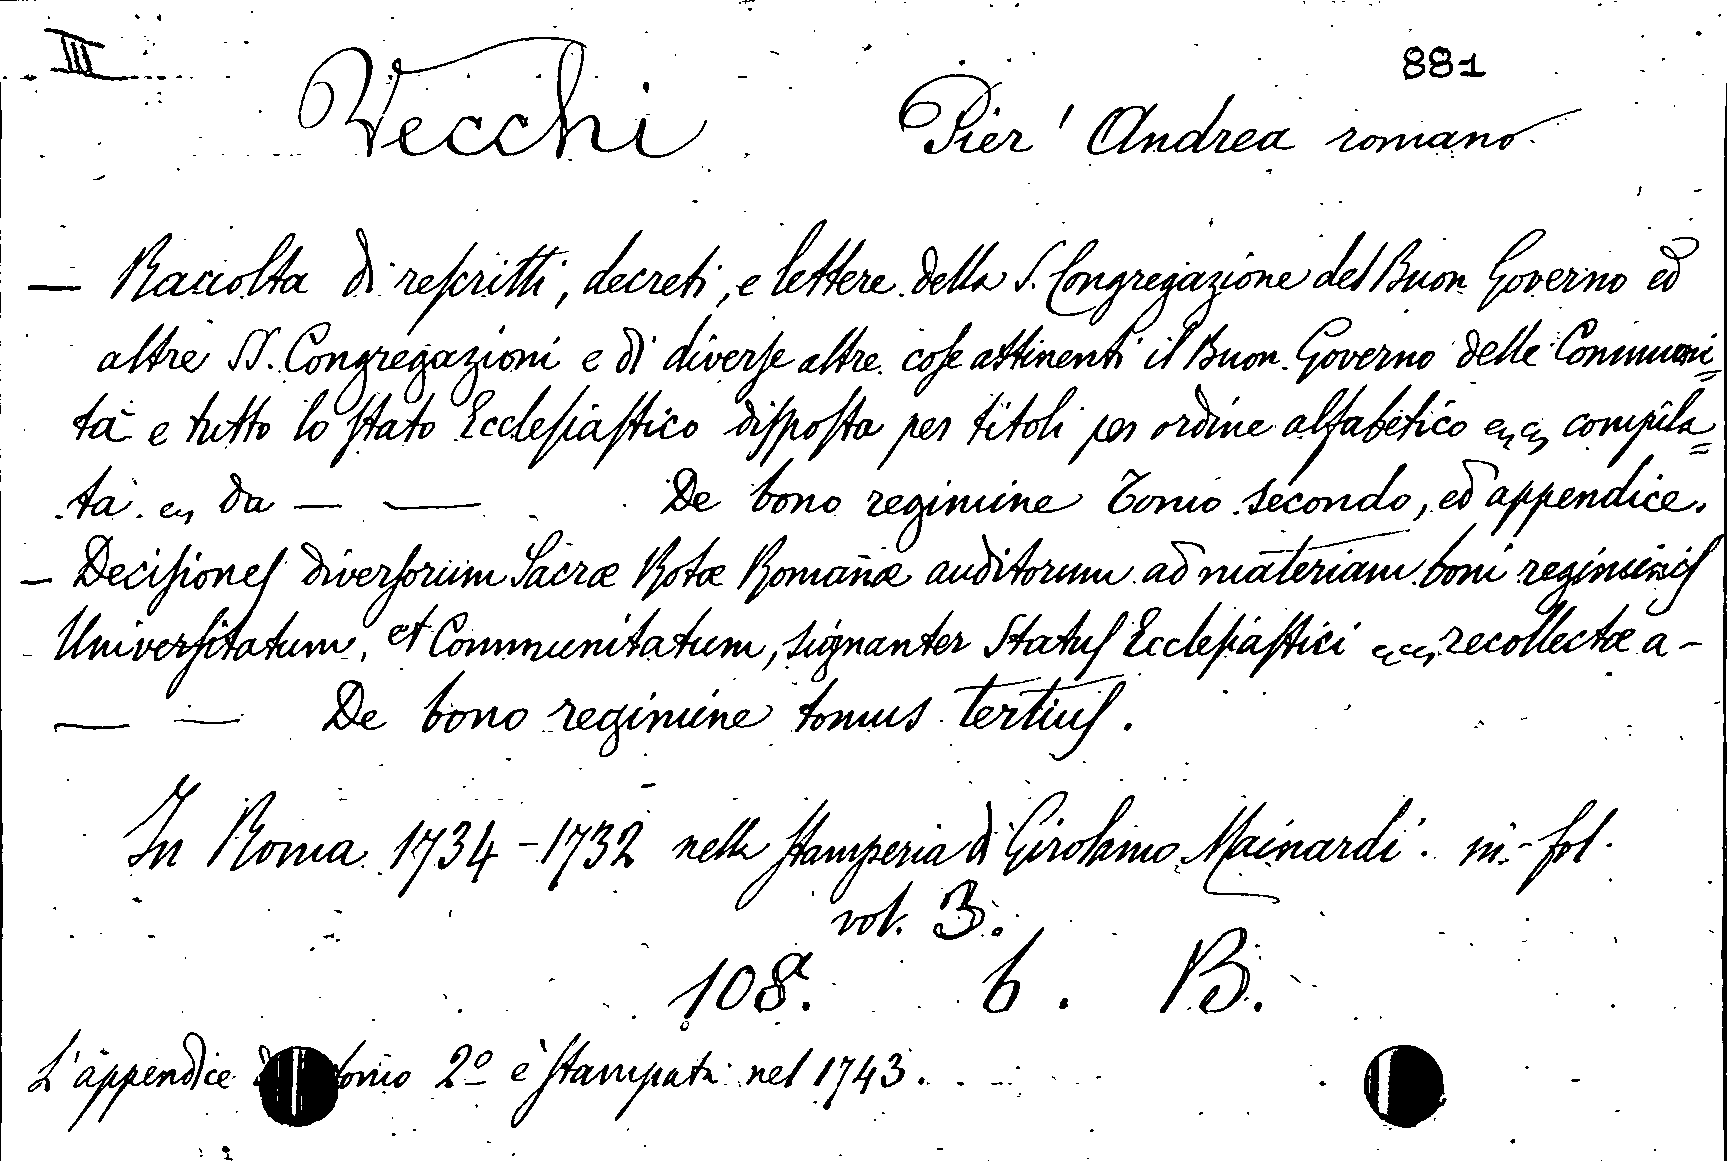 III
881
Vecchi Pier' Andrea romano
— Raccolta di rescritti, decreti, e lettere della S. Congregazione del Buon Governo ed
altre SS. Congregazioni e di diverse altre cose attinenti il Buon Governo delle Communi=
tà e tutto lo stato Ecclesiastico disposta per titoli per ordine alfabetico compila=
ta da — — De bono regimine Tomo secondo, ed appendice.
— Decisiones diversorum Sacræ Rotæ Romanæ auditorum ad materiam boni regiminis
Universitatum, et Communitatum, signanter Status Ecclesiastici recollectæ a —
— — De bono regimine tomus tertius.
In Roma 1734-1732 nella stamperia di Girolamo Mainardi. in-fol.
vol. 3.
108. 6. B.
L'appendice tomo 2º è stampata nel 1743.